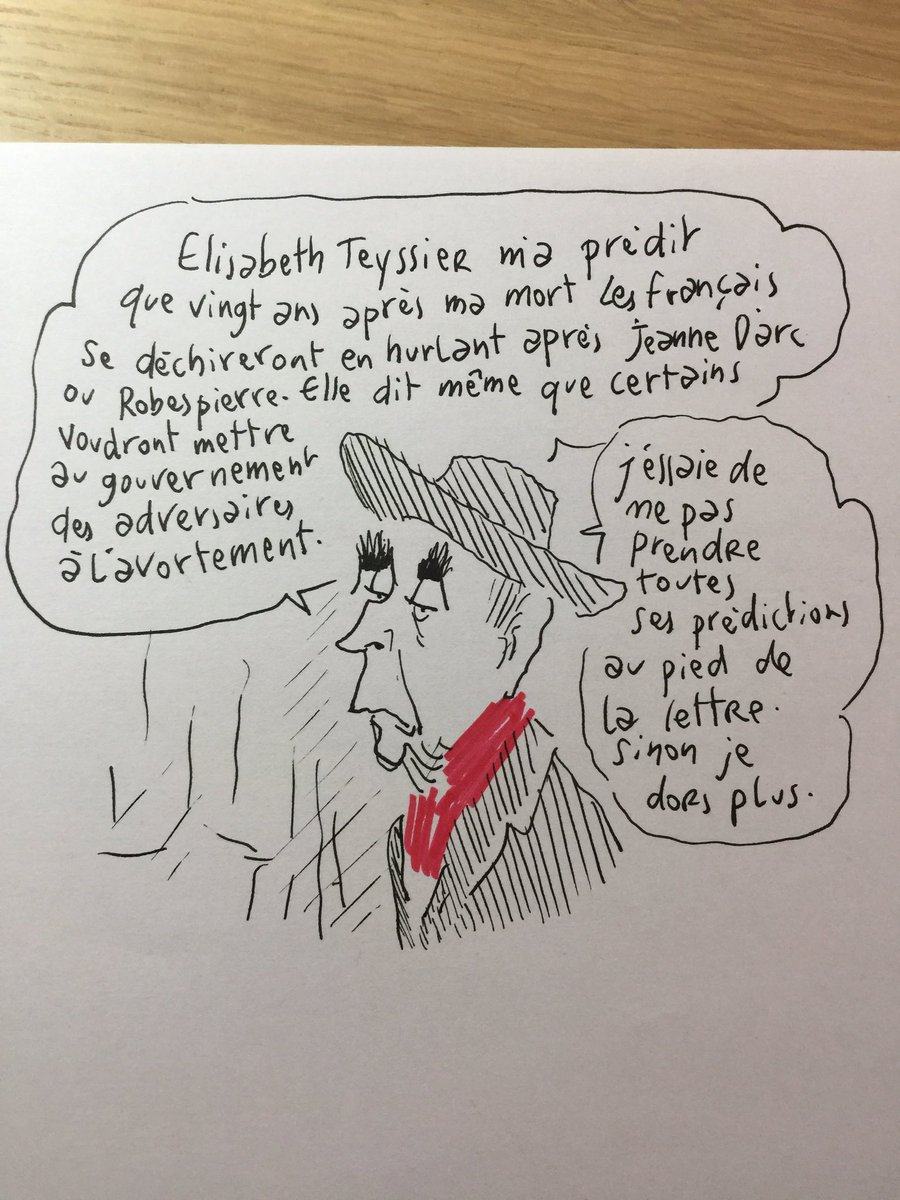 Elisabeth Teyssier m'a prédit
que vingt ans après ma mort les français
se déchireront en hurlant après Jeanne D'arc
ou Robespierre. Elle dit même que certains
voudront mettre
au gouvernement
des adversaires
à l'avortement.
j'éssaie de
ne pas
prendre
toutes
ses prédictions
au pied de
la lettre.
sinon je
dors plus.